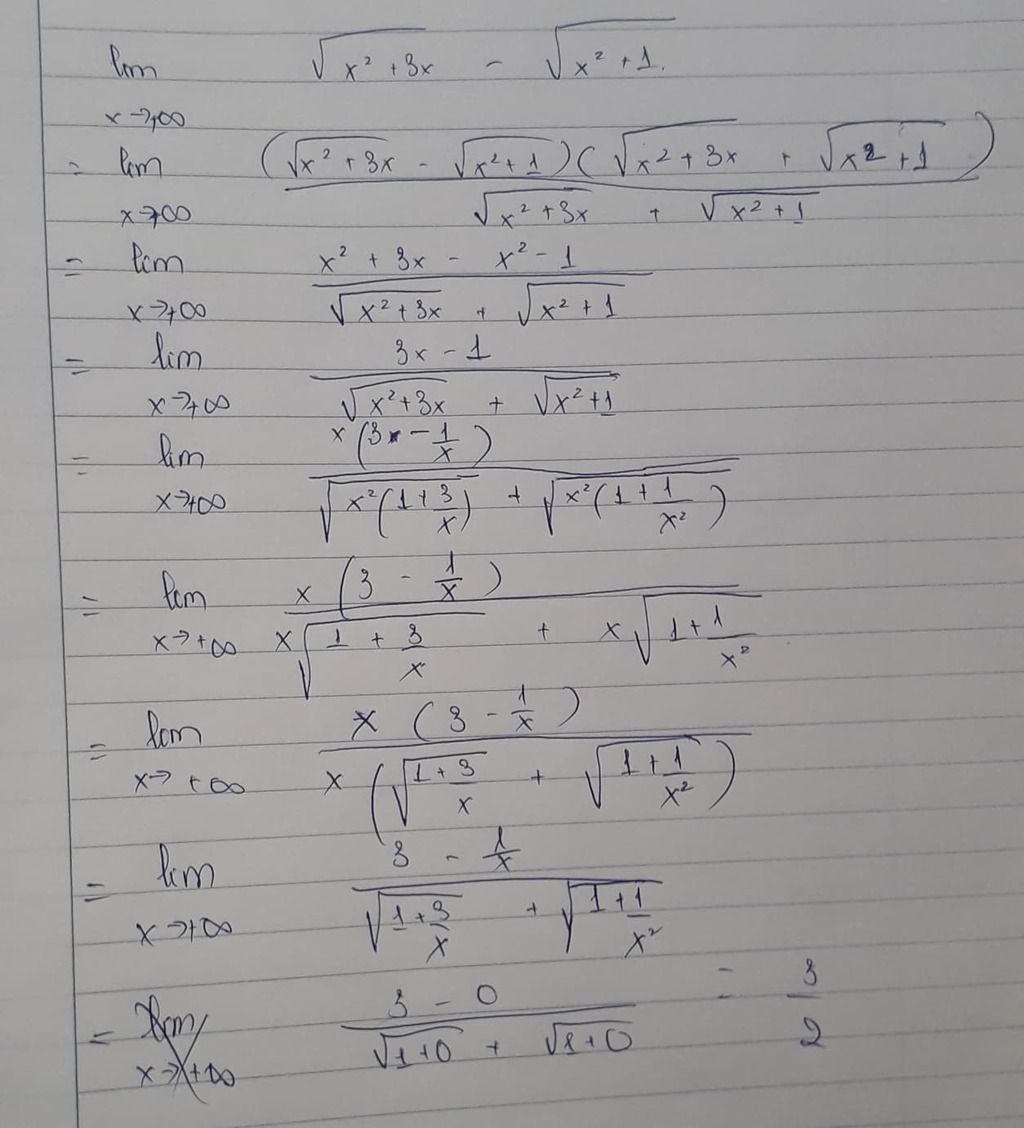 lim √(x² + 3x) - √(x² + 1).
x→+∞
= lim (√(x² + 3x) - √(x² + 1))(√(x² + 3x) + √(x² + 1))
x→+∞ √(x² + 3x) + √(x² + 1)
= lim x² + 3x - x² - 1
x→+∞ √(x² + 3x) + √(x² + 1)
= lim 3x - 1
x→+∞ √(x² + 3x) + √(x² + 1)
= lim x (3 - 1/x)
x→+∞ √(x² (1 + 3/x)) + √(x² (1 + 1/x²))
= lim x (3 - 1/x)
x→+∞ x √(1 + 3/x) + x √(1 + 1/x²)
= lim x (3 - 1/x)
x→+∞ x (√(1 + 3/x) + √(1 + 1/x²))
= lim 3 - 1/x
x→+∞ √(1 + 3/x) + √(1 + 1/x²)
= lim 3 - 0 = 3/2
x→+∞ √(1 + 0) + √(1 + 0)